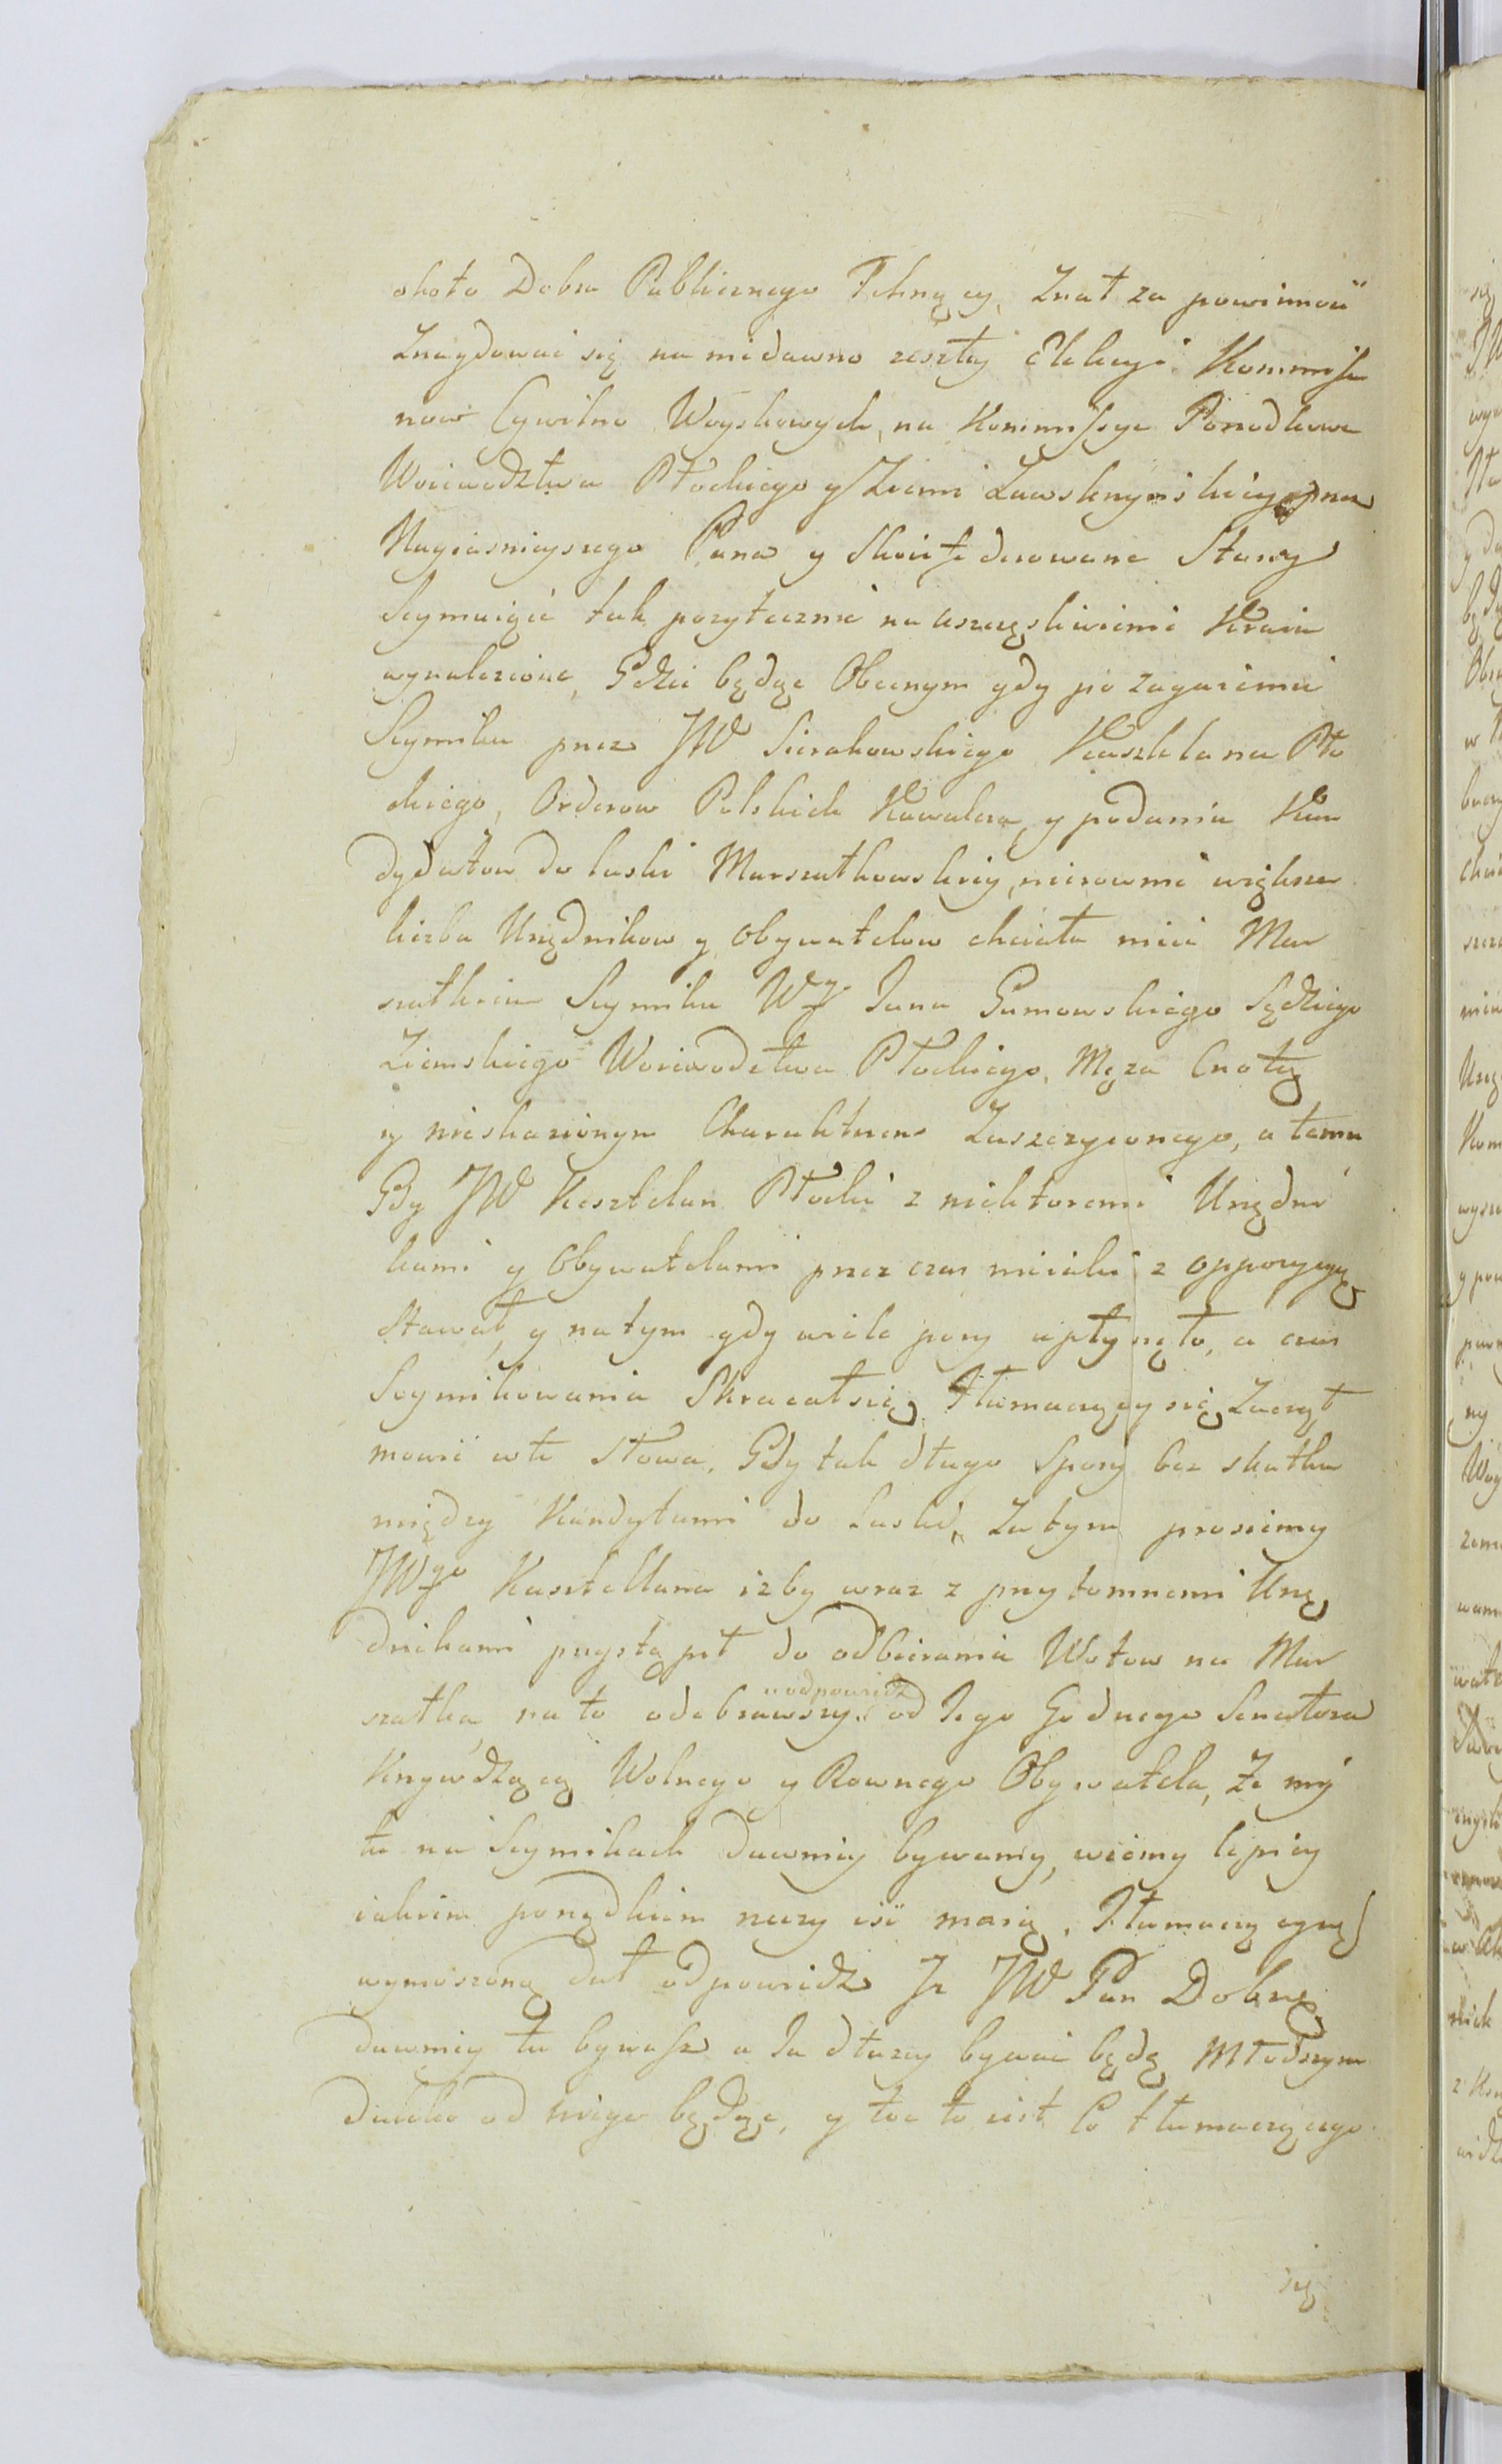 około Dobra Publicznego Tchnący, Znał za powinność
Znaydować się na niedawno zeszłey Elekcyi Kommissa
row Cywilno Woyskowych, na Kommissye Porządkowe
Woiewodztwa Płockiego y Ziemi Zawskrzynskiey przez
Nayiasnieyszego Pana y Skonfederowane Stany
Seymuiące tak pozytecznie na uszczęsliwienie Kraiu
wynalezione, Gdzie będąc Obecnym gdy po zagaieniu
Seymiku przez JW Sierakowskiego Kasztelana Pło
ckiego, Orderow Polskich Kawalera, y podaniu Kan
dydatow do laski Marszałkowskiey, nierownie większa
liczba Urzędnikow y Obywatelow chciała mieć Mar
szałkiem Seymiku Wgo Jana Gumowskiego Sędziego
Ziemskiego Woiewodztwa Płockiego, Męza Cnotą
y nieskazionym Charakterem Zaszczyconego, a temu
Gdy JW Kasztelan Płocki z niektoremi Urzędni
kami y Obywatelami przez czas nieiaki z oppozycyą
Stawał, y na tym gdy wiele pory upłynęło, a czas
Seymikowania Skracał się, Tłumaczący się Zaczął
mowić w te słowa, Gdy tak długo Spory bez skutku
między Kandytami do Laski, Zatym prosiemy
JWgo Kasztellana izby wraz z przytomnemi Urzę
dnikami przystąpił do odbierania Wotow na Mar
szałka, na to odebrawszy odpowiedz od Tego Godnego Senatora
Krzywdzącą Wolnego y Rownego Obywatela, Ze my
tu na Seymikach dawniey bywamy, wiemy lepiey
iakiem porządkiem rzeczy iść maią, Tłumaczący się
wymoszoną dał odpowiedz Ze JW Pan Dobrz
dawniey tu bywasz a Ja dłuzey bywać będę Młodszym
daleko od niego będąc, y toc to iest Co tłumaczącego
się